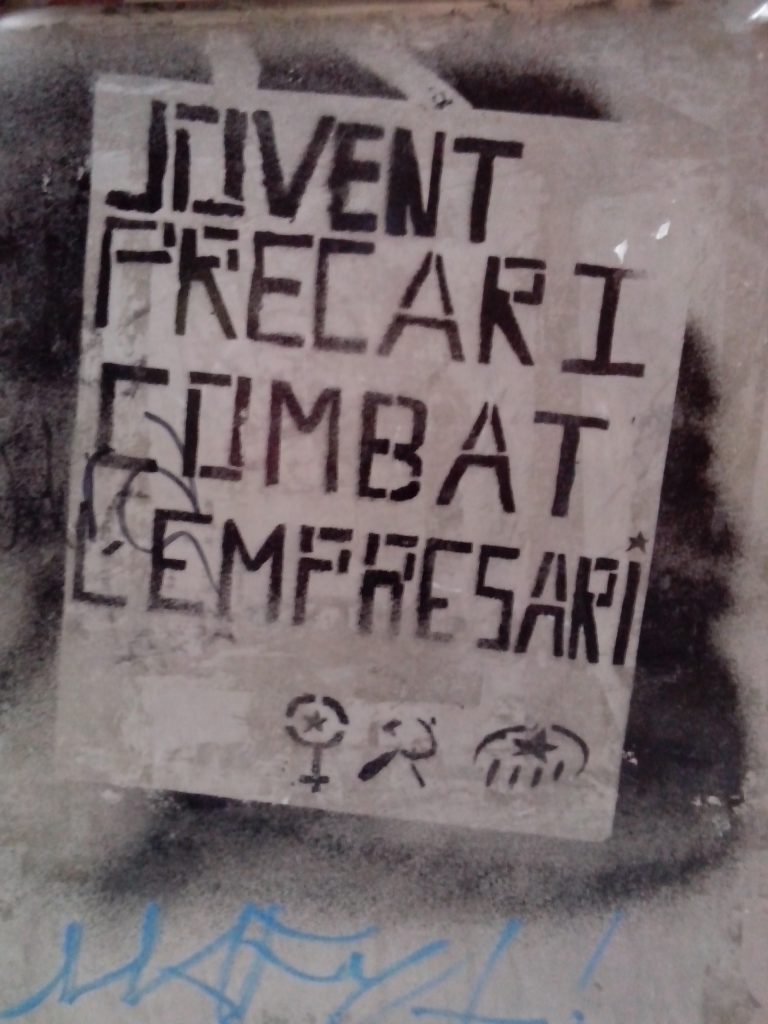 JOVENT
PRECARI
COMBAT
L'EMPRESARI